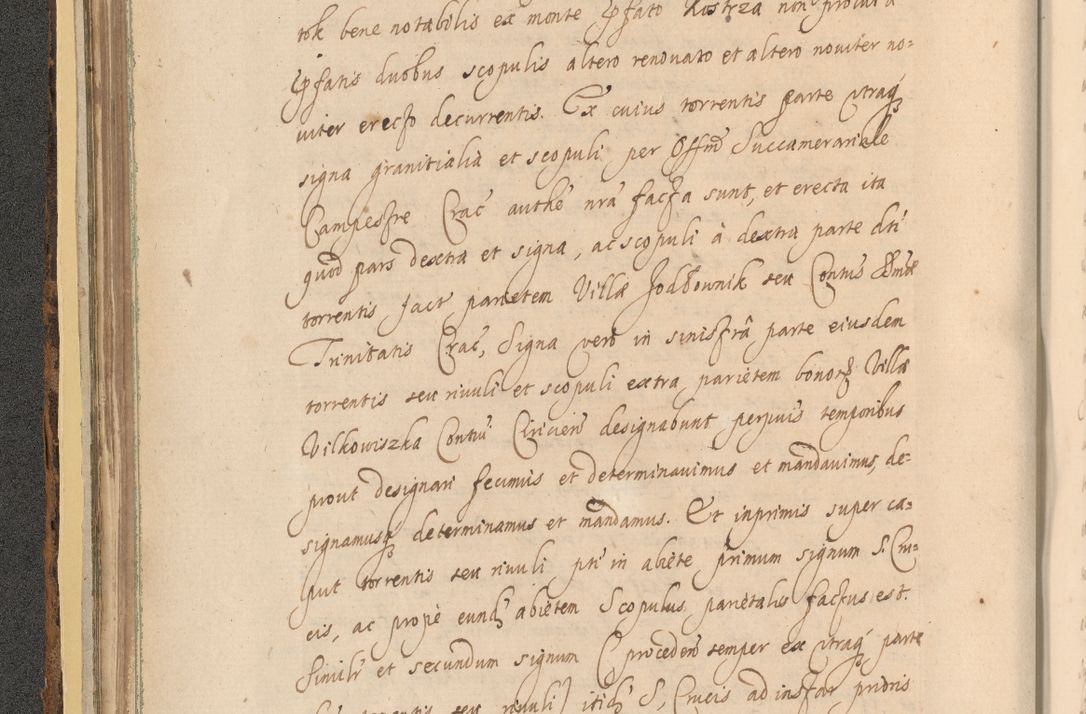 tok bene notabilis ex monte Pfato Kostrza non procul a
Pfatis duobus scopulis altero renouato et altero nouiter no=
uiter erecto decurrentis. Ex cuius torrentis parte utraq
signa granitialia et scopuli per Offm Succamerariale
Campestre Crac authe nra facta sunt, et erecta ita
quod pars dextra et signa, ac scopuli à dextra parte dti
torrentis fact parietem Villæ Jodłownik seu Contus
Trinitatis Crac, Signa vero in sinistrâ parte eiusdem
torrentis seu riuuli et scopuli extra parietem bonorz Villæ
Vilkowiszka Contus Ciricien designabunt perpuis temporibus
prout designari fecimus et determinauimus et mandauimus, de=
signamusq determinamus et mandamus. Et inprimis super ca=
put torrentis seu riuuli pti in abiete primum signum S. Cru=
cis, ac propè eund abietem Scopulus parietalis factus est.
Similr et secundum signum (procedens semper ex utraq parte
torrentis seu riuuli) itid S. Crucis ad instar prioris